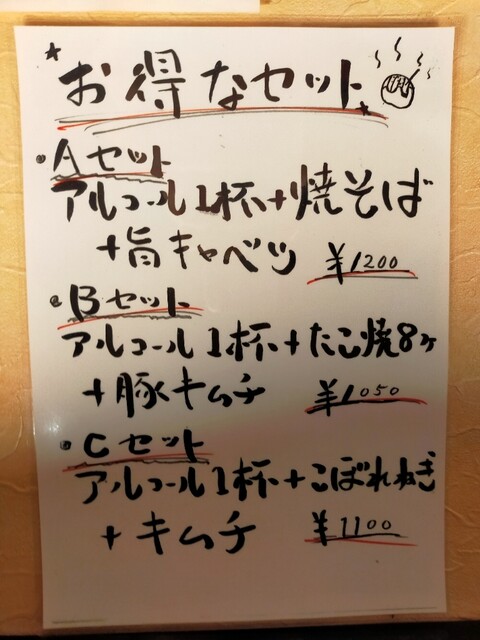 お得なセット
・Aセット
アルコール1杯+焼そば
+旨キャベツ ¥1200
・Bセット
アルコール1杯+たこ焼8ヶ
+豚キムチ ¥1050
・Cセット
アルコール1杯+こぼれねぎ
+キムチ ¥1100